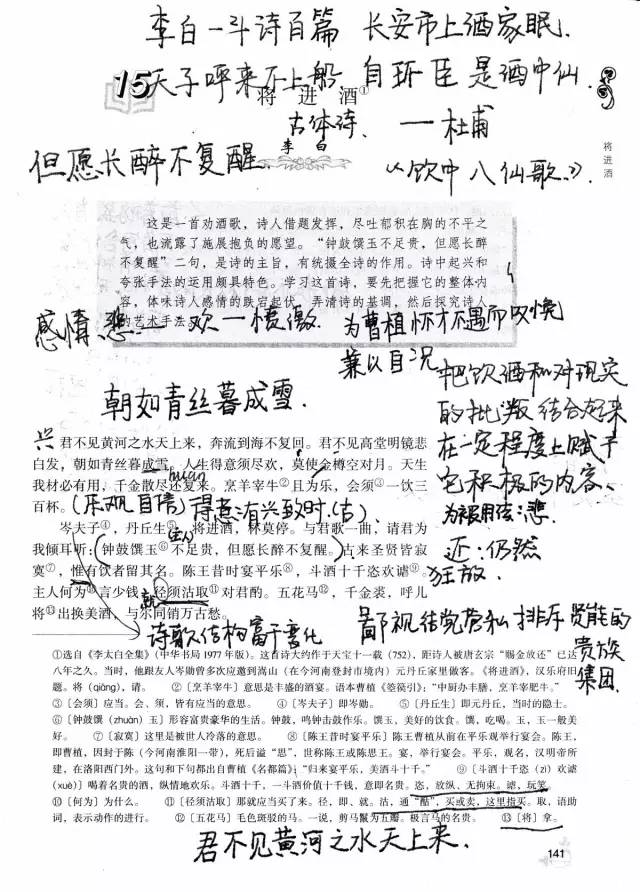 李白一斗诗百篇 长安市上酒家眠.
15 天子呼来不上船 自称臣是酒中仙.
将进酒①
古体诗、 ——杜甫
李白
但愿长醉不复醒 《饮中八仙歌》.
将进酒
这是一首劝酒歌，诗人借题发挥，尽吐郁积在胸的不平之
气，也流露了施展抱负的愿望。“钟鼓馔玉不足贵，但愿长醉
不复醒”二句，是诗的主旨，有统摄全诗的作用。诗中起兴和
夸张手法的运用颇具特色。学习这首诗，要先把握它的整体内
容，体味诗人感情的跌宕起伏，弄清诗的基调，然后探究诗人
的艺术手法。
感情 悲—欢—愤激. 为曹植怀才不遇而叹惋
兼以自况
朝如青丝暮成雪.
把饮酒和对现实
的批判结合起来
在一定程度上赋予
它积极的内容、
悲
还:仍然
狂放.
兴 君不见黄河之水天上来，奔流到海不复回。君不见高堂明镜悲
白发，朝如青丝暮成雪。人生得意须尽欢，莫使金樽空对月。天生
huán
我材必有用，千金散尽还复来。烹羊宰牛②且为乐，会须③一饮三
百杯。(乐观自信) 得意:有兴致时.(古)
岑夫子④，丹丘生⑤，将进酒，杯莫停。与君歌一曲，请君为
我倾耳听:(钟鼓馔玉⑥不足贵，但愿长醉不复醒。)古来圣贤皆寂
寞⑦，惟有饮者留其名。陈王昔时宴平乐⑧，斗酒十千恣欢谑⑨。
主人何为⑩言少钱，径须沽取⑪对君酌。五花马⑫，千金裘，呼儿
就
将⑬出换美酒，与尔同销万古愁。
诗歌结构富于变化
鄙视结党营私排斥贤能的
贵族
集团.
①选自《李太白全集》(中华书局1977年版)。这首诗大约作于天宝十一载(752)，距诗人被唐玄宗“赐金放还”已达
八年之久。当时，他跟友人岑勋曾多次应邀到嵩山(在今河南登封市境内)元丹丘家里做客。《将进酒》，汉乐府旧
题。将(qiāng)，请。 ②〔烹羊宰牛〕意思是丰盛的酒宴。语本曹植《箜篌引》：“中厨办丰膳，烹羊宰肥牛。”
③〔会须〕应当。会、须，皆有应当的意思。 ④〔岑夫子〕即岑勋。 ⑤〔丹丘生〕即元丹丘，当时的隐士。
⑥〔钟鼓馔(zhuàn)玉〕形容富贵豪华的生活。钟鼓，鸣钟击鼓作乐。馔玉，美好的饮食。馔，吃喝。玉，玉一般美
好。 ⑦〔寂寞〕这里是被世人冷落的意思。 ⑧〔陈王昔时宴平乐〕陈王曹植从前在平乐观举行宴会。陈王，
即曹植，因封于陈(今河南淮阳一带)，死后谥“思”，世称陈王或陈思王。宴，举行宴会。平乐，观名，汉明帝所
建，在洛阳西门外。这句和下句都出自曹植《名都篇》：“归来宴平乐，美酒斗十千。” ⑨〔斗酒十千恣(zì)欢谑
(xuè)〕喝着名贵的酒，纵情地欢乐。斗酒十千，一斗酒价值十千钱，意即名贵。恣，放纵，无拘束。谑，玩笑。
⑩〔何为〕为什么。 ⑪〔径须沽取〕那就应当买了来。径，即、就。沽，通“酤”，买或卖，这里指买。取，语助
词，表示动作的进行。 ⑫〔五花马〕毛色斑驳的马。一说，剪马鬃为五瓣。极言马的名贵。 ⑬〔将〕拿。
君不见黄河之水天上来.
141